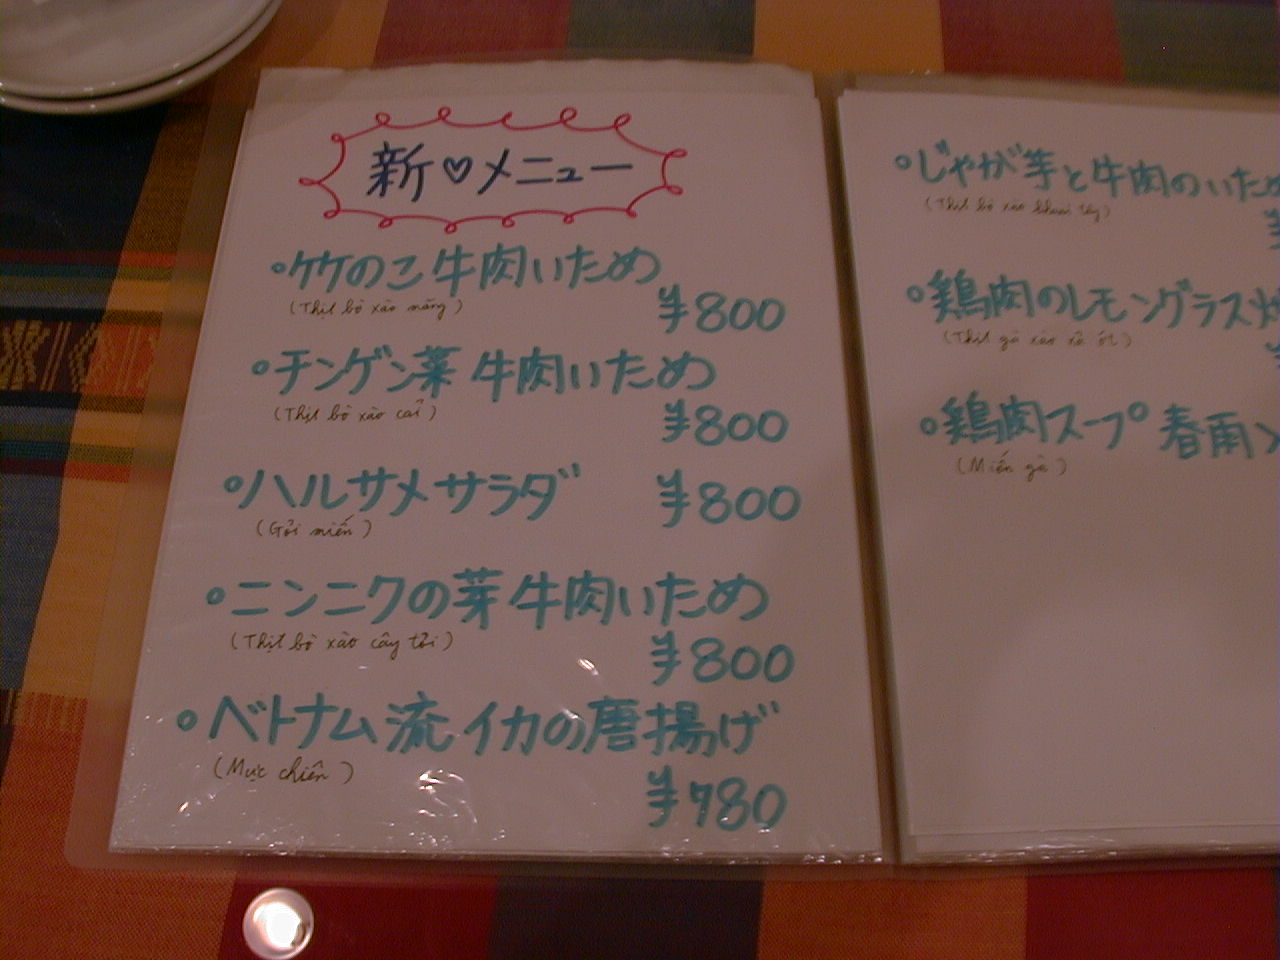 新♡メニュー
○竹のこ牛肉いため
(Thịt bò xào măng)
¥800
○チンゲン菜 牛肉いため
(Thịt bò xào cải)
¥800
○ハルサメサラダ ¥800
(Gỏi miến)
○ニンニクの芽牛肉いため
(Thịt bò xào cây tỏi)
¥800
○ベトナム流イカの唐揚げ
(Mực chiên)
¥780
○じゃが芋と牛肉のいため
(Thịt bò xào khoai tây)
○鶏肉のレモングラス
(Thịt gà xào xả ớt)
○鶏肉スープ 春雨
(Miến gà)